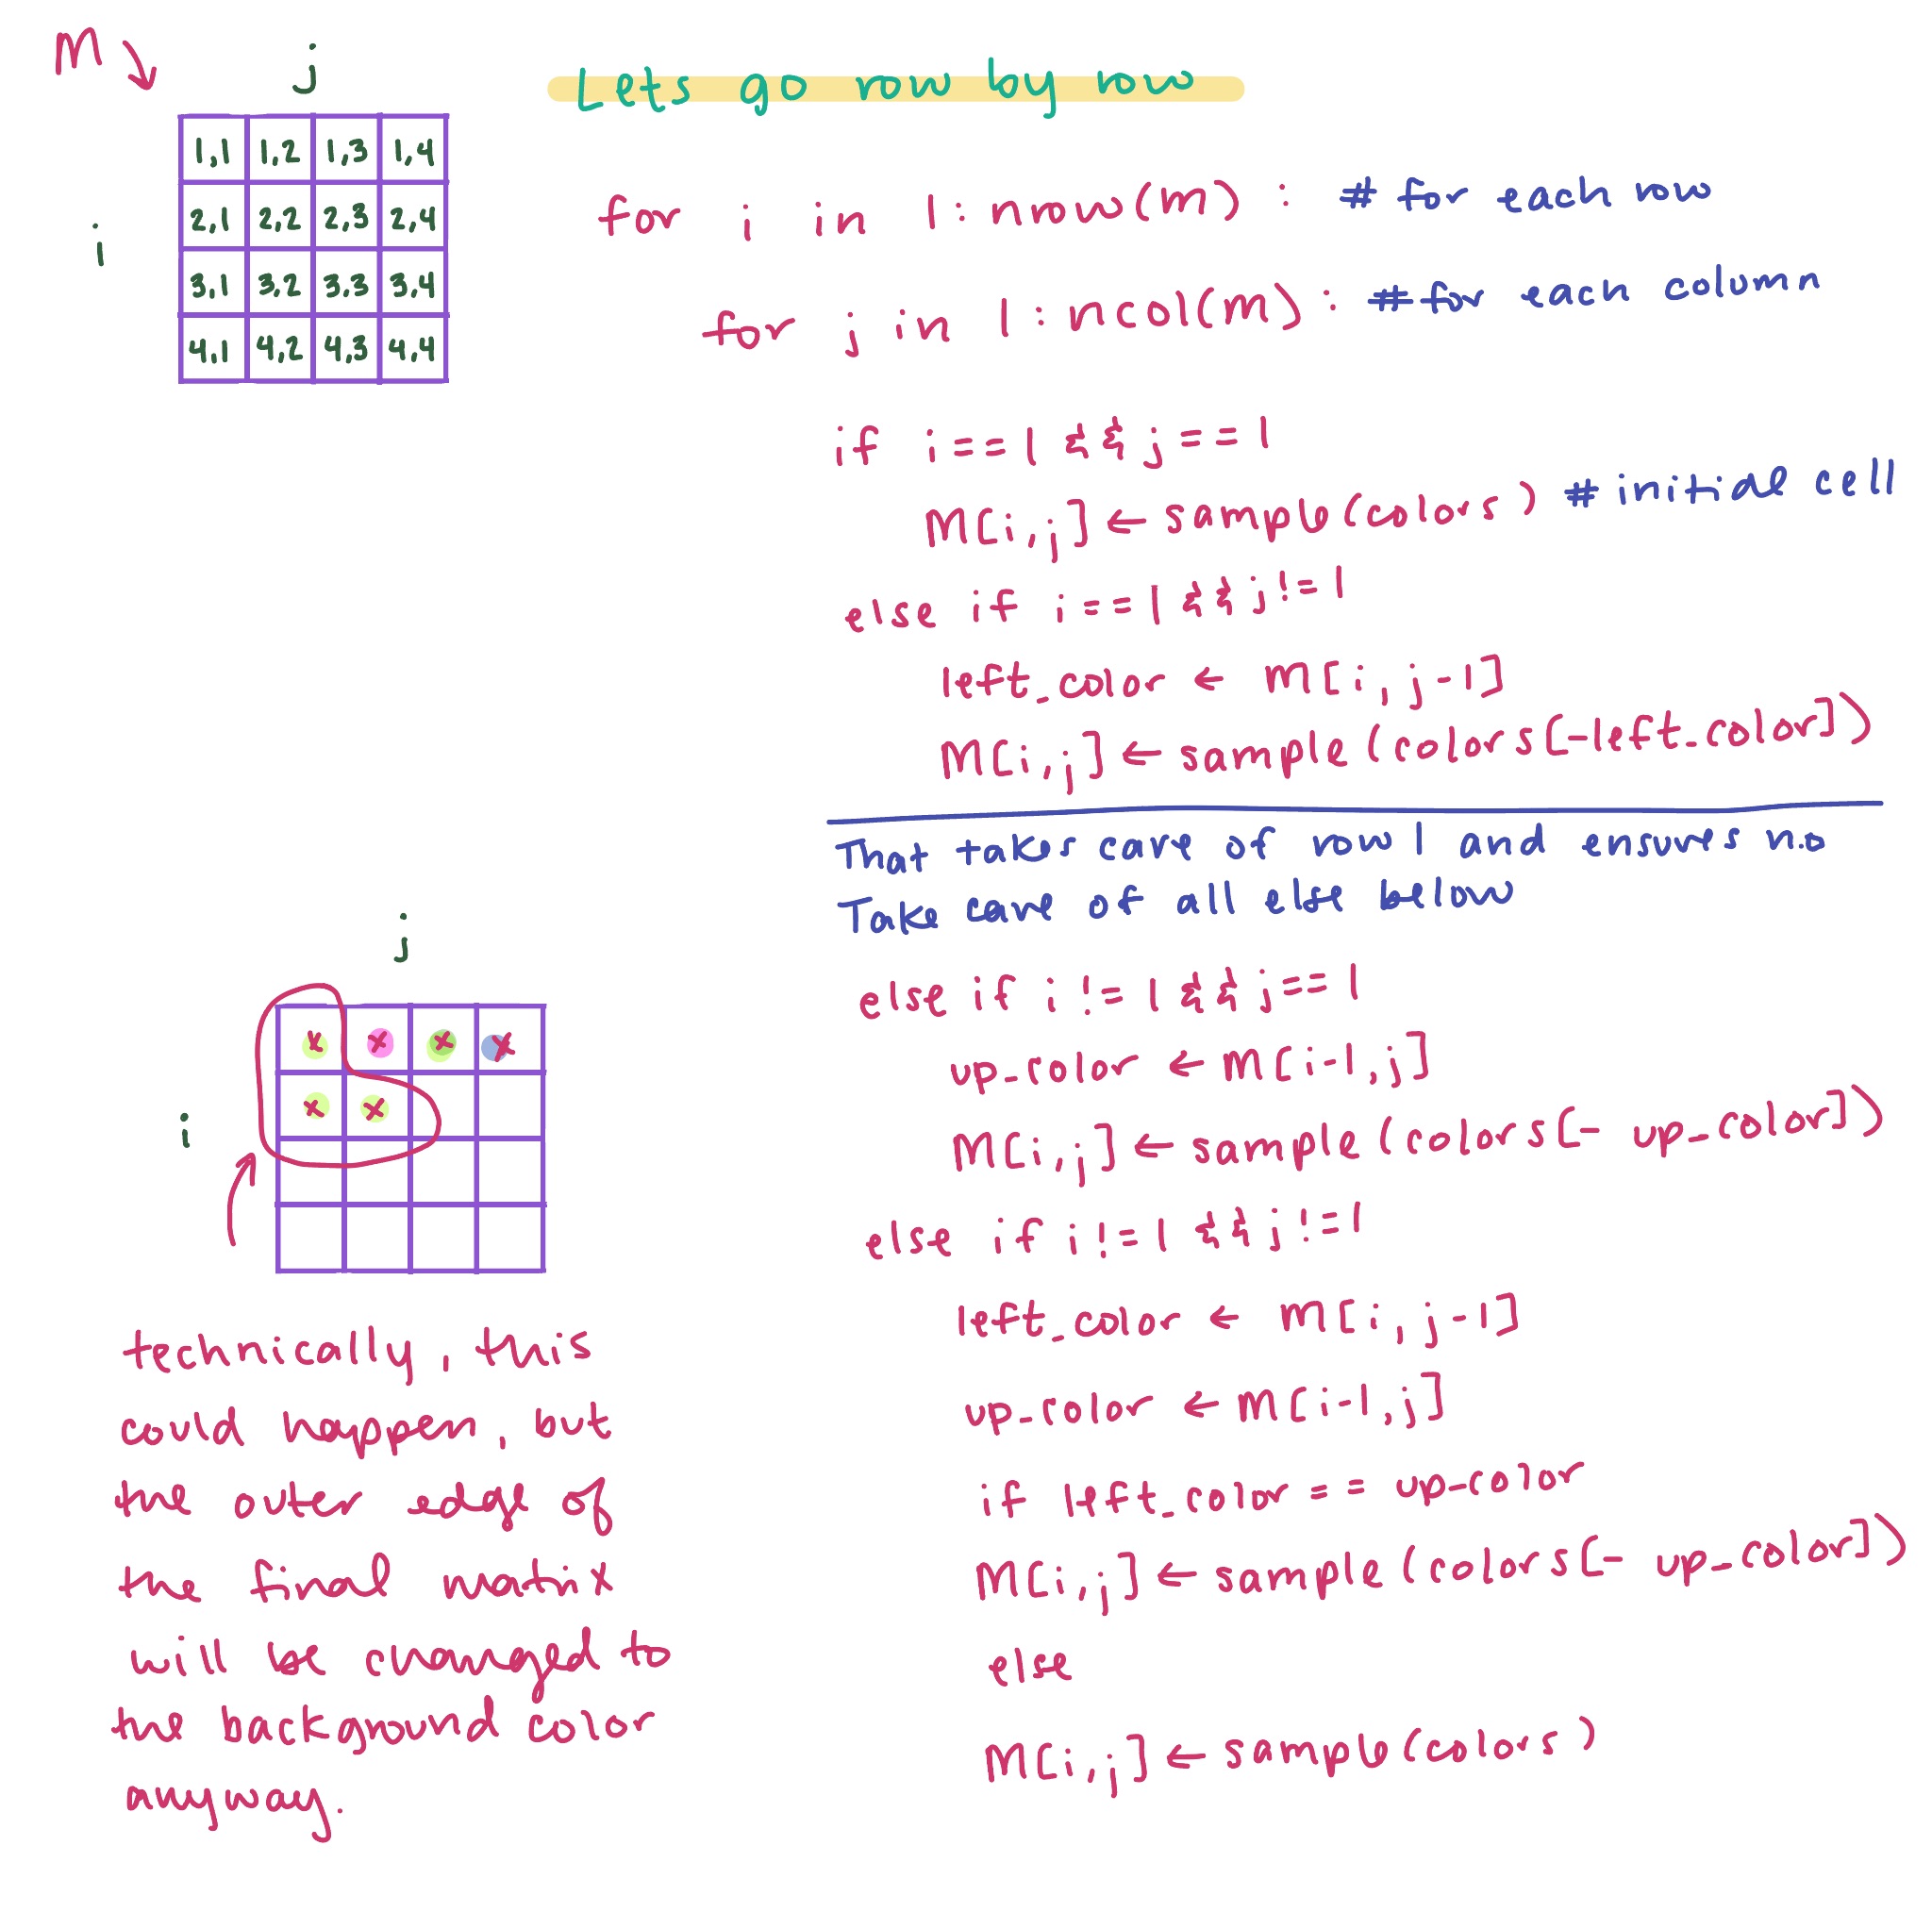 M
j
1,1 1,2 1,3 1,4
2,1 2,2 2,3 2,4
i
3,1 3,2 3,3 3,4
4,1 4,2 4,3 4,4
Lets go row by row
for i in 1:nrow(m) : # for each row
for j in 1:ncol(m) : # for each column
if i==1 && j==1
M[i,j] ← sample(colors) # initial cell
else if i==1 && j!=1
left_color ← M[i,j-1]
M[i,j] ← sample(colors[-left_color])
That takes care of row 1 and ensures n.o
Take care of all else below
else if i!=1 && j==1
up_color ← M[i-1,j]
M[i,j] ← sample(colors[- up_color])
else if i!=1 && j!=1
left_color ← M[i,j-1]
up_color ← M[i-1,j]
if left_color == up_color
M[i,j] ← sample(colors[- up_color])
else
M[i,j] ← sample(colors)
j
x x x x
x x
i
technically, this
could happen, but
the outer edge of
the final matrix
will be changed to
the background color
anyway.